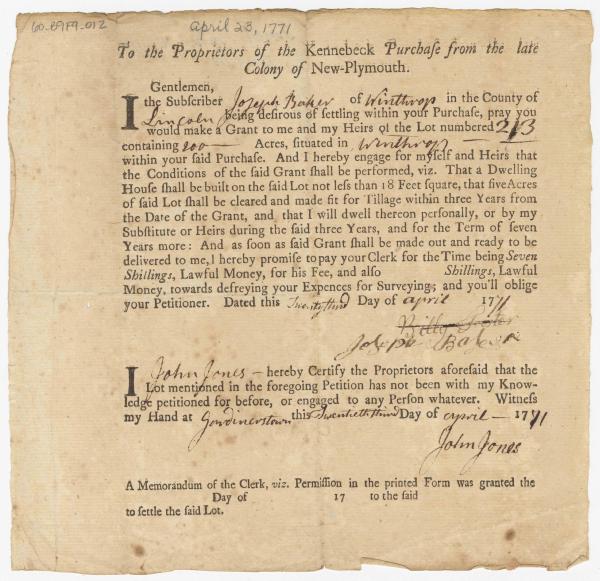 60-B9F9-012
april 23, 1771
To the Proprietors of the Kennebeck Purchaſe from the late
Colony of New-Plymouth.
Gentlemen,
I the Subſcriber Joseph Baker of Winthrop in the County of
Lincoln being deſirous of ſettling within your Purchaſe, pray you
would make a Grant to me and my Heirs of the Lot numbered 213
containing 200 — Acres, ſituated in Winthrop —
within your ſaid Purchaſe. And I hereby engage for myſelf and Heirs that
the Conditions of the ſaid Grant ſhall be performed, viz. That a Dwelling
Houſe ſhall be built on the ſaid Lot not leſs than 18 Feet ſquare, that five Acres
of ſaid Lot ſhall be cleared and made fit for Tillage within three Years from
the Date of the Grant, and that I will dwell thereon perſonally, or by my
Subſtitute or Heirs during the ſaid three Years, and for the Term of ſeven
Years more: And as ſoon as ſaid Grant ſhall be made out and ready to be
delivered to me, I hereby promiſe to pay your Clerk for the Time being Seven
Shillings, Lawful Money, for his Fee, and alſo Shillings, Lawful
Money, towards defreying your Expences for Surveying, and you'll oblige
your Petitioner. Dated this Twenty third Day of april 1771
Joseph Baker
I John Jones – hereby Certify the Proprietors aforeſaid that the
Lot mentioned in the foregoing Petition has not been with my Know-
ledge petitioned for before, or engaged to any Perſon whatever. Witneſs
my Hand at Gardinerstown this Twentieth third Day of april – 1771
John Jones
A Memorandum of the Clerk, viz. Permiſſion in the printed Form was granted the
Day of 17 to the ſaid
to ſettle the ſaid Lot.